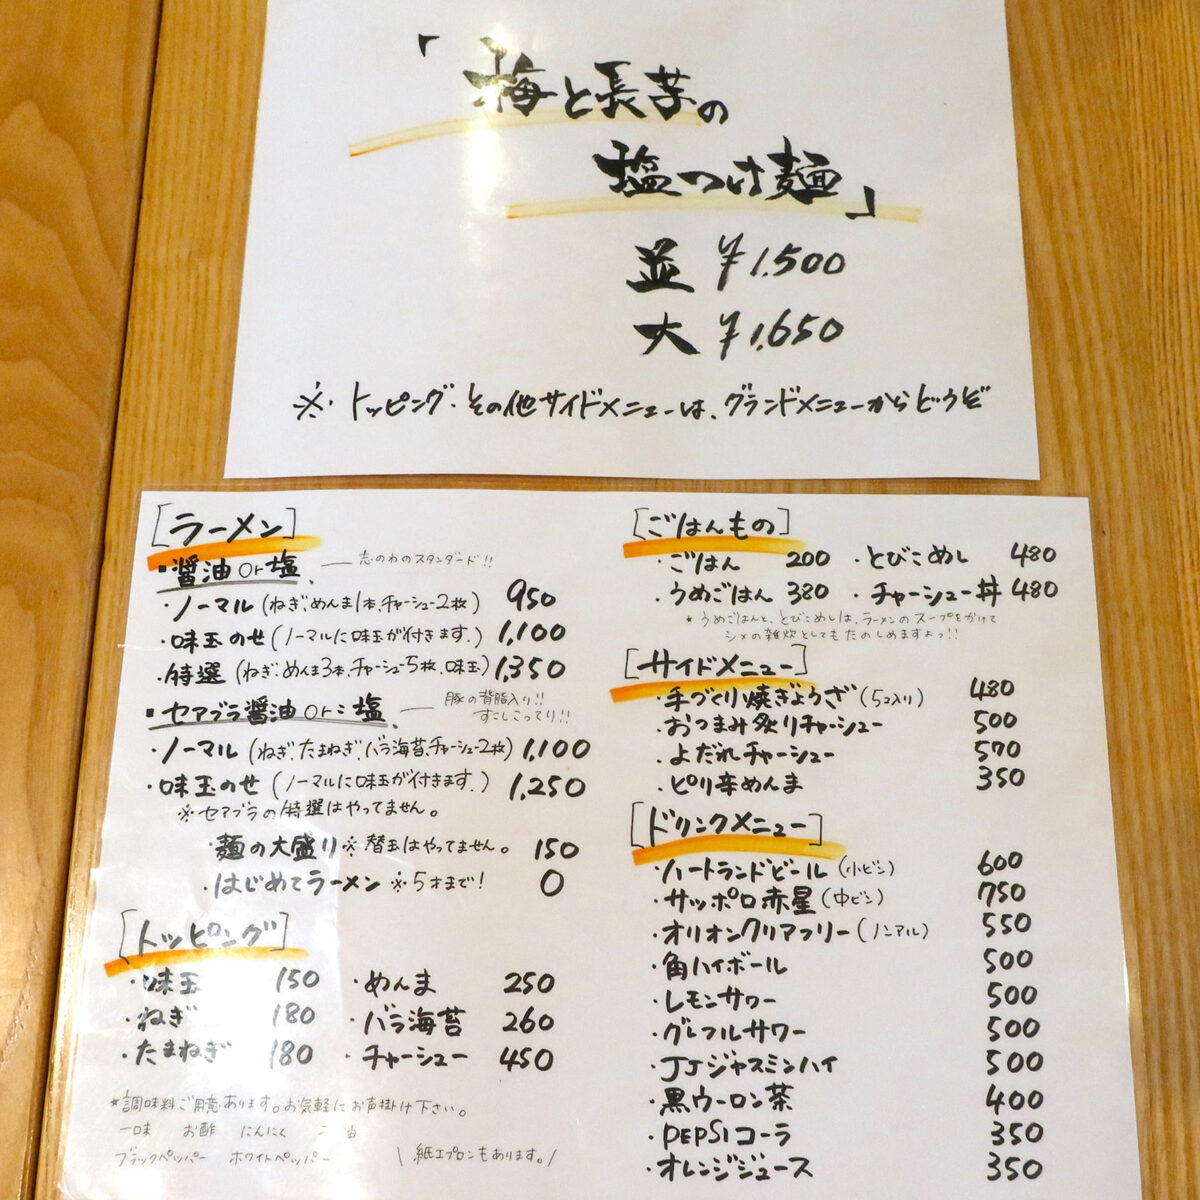 「梅と長芋の
塩つけ麺」
並 ¥1,500
大 ¥1,650
※・トッピング・その他サイドメニューは、グランドメニューからどうぞ
[ラーメン]
▪醤油or塩、 ― 志のわのスタンダード!!
・ノーマル(ねぎ、めんま1本、チャーシュー2枚) 950
・味玉のせ(ノーマルに味玉が付きます。) 1,100
・特選(ねぎ、めんま3本、チャーシュー5枚、味玉) 1,350
▪セアブラ醤油or塩、 ― 豚の背脂入り!!
すこしこってり!!
・ノーマル(ねぎ、たまねぎ、バラ海苔、チャーシュー2枚) 1,100
・味玉のせ(ノーマルに味玉が付きます。) 1,250
※セアブラの特選はやってません。
・麺の大盛り※替玉はやってません。 150
・はじめてラーメン ※5才まで! 0
[トッピング]
・味玉 150 ・めんま 250
・ねぎ 180 ・バラ海苔 260
・たまねぎ 180 ・チャーシュー 450
★調味料ご用意あります。お気軽にお声掛け下さい。
一味 お酢 にんにく
ブラックペッパー ホワイトペッパー \紙エプロンもあります。/
[ごはんもの]
・ごはん 200 ・とびこめし 480
・うめごはん 380 ・チャーシュー丼 480
★うめごはんと、とびこめしは、ラーメンのスープをかけて
シメの雑炊としてもたのしめますよっ!!
[サイドメニュー]
・手づくり焼ぎょうざ(5コ入り) 480
・おつまみ炙りチャーシュー 500
・よだれチャーシュー 570
・ピリ辛めんま 350
[ドリンクメニュー]
・ハートランドビール(小ビン) 600
・サッポロ赤星(中ビン) 750
・オリオンクリアフリー(ノンアル) 550
・角ハイボール 500
・レモンサワー 500
・グレフルサワー 500
・JJジャスミンハイ 500
・黒ウーロン茶 400
・PEPSIコーラ 350
・オレンジジュース 350